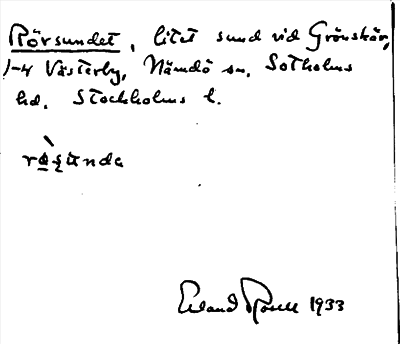 Rörsundet, litet sund vid Grönskär,
1-4 Västerby, Nämdö sn. Sotholms
hd. Stockholms l.
rè̱ʂùnda
Erland Rosell 1933